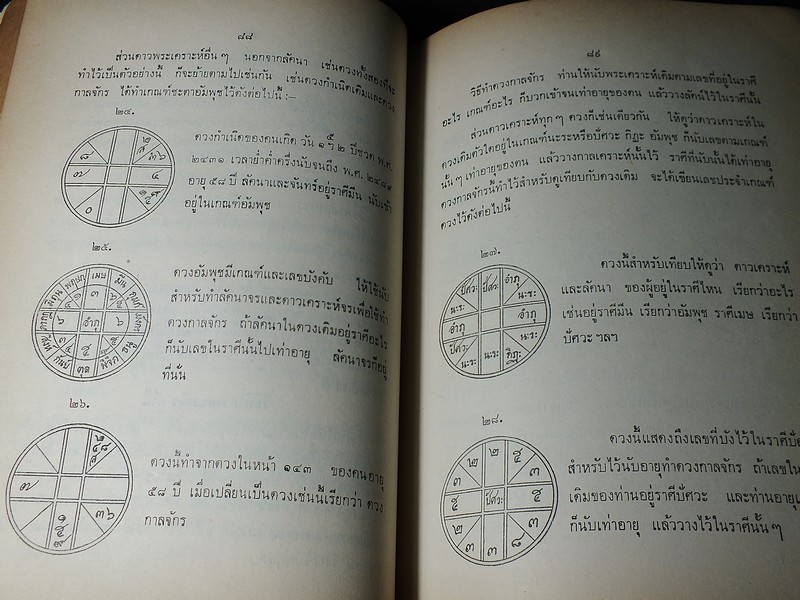 ๘๘
ส่วนดาวพระเคราะห์อื่น ๆ นอกจากลัคนา เช่นดวงทั้งสองที่จะ
ทำไว้เป็นตัวอย่างนี้ ก็จะย้ายตามไปเช่นกัน เช่นดวงกำเนิดเดิมและดวง
กาลจักร ได้ทำเกณฑ์ชะตาอัมพุชไว้ดังต่อไปนี้ :—
๒๔.
ดวงกำเนิดของคนเกิด วัน ปีชวด พ.ศ.
๒๔๓๑ เวลาย่ำค่ำครึ่งนับจนถึง พ.ศ. ๒๔๘๙
อายุ ๕๘ ปี ลัคนาและจันทร์อยู่ราศีมีน นับเข้า
อยู่ในเกณฑ์อัมพุช
๒๕.
เมษ
พฤษภ
มิถุน
มีน
กุมภ์
กันย์
ตุล
พิจิก
ธนู
อำภุ
ดวงอัมพุชมีเกณฑ์และเลขบังคับ ให้ใช้นับ
สำหรับทำลัคนาจรและดาวเคราะห์จรเพื่อใช้ทำ
ดวงกาลจักร ถ้าลัคนาในดวงเดิมอยู่ราศีอะไร
ก็นับเลขในราศีนั้นไปเท่าอายุ ลัคนาจรก็อยู่
ที่นั่น
๒๖.
ดวงนี้ทำจากดวงในหน้า ๑๔๓ ของคนอายุ
๕๘ ปี เมื่อเปลี่ยนเป็นดวงเช่นนี้เรียกว่า ดวง
กาลจักร
๘๙
วิธีทำดวงกาลจักร ท่านให้นับพระเคราะห์เดิมตามเลขที่อยู่ในราศี
อะไร เกณฑ์อะไร ก็บวกเข้าจนเท่าอายุของคน แล้ววางลัคน์ไว้ในราศีนั้น
ส่วนดาวเคราะห์ทุก ๆ ดวงก็เช่นเดียวกัน ให้ดูว่าดาวเคราะห์ใน
ดวงเดิมตัวใดอยู่ในเกณฑ์นะระหรือปัศวะ กิฏะ อัมพุช ก็นับเลขตามเกณฑ์
นั้น ๆ เท่าอายุของคน แล้ววางกาลเคราะห์นั้นไว้ ราศีที่นับนั้นได้เท่าอายุ
ดวงกาลจักรนี้ทำไว้สำหรับดูเทียบกับดวงเดิม จะได้เขียนเลขประจำเกณฑ์
ดวงไว้ดังต่อไปนี้
๒๗.
ปัศวะ ปัศวะ อำภุ
นะ:ระ: นะ:ระ:
อำภุ อำภุ
ปัศวะ นะ:ระ:
นะ:ระ: นะ:ระ: กิฏะ:
ดวงนี้สำหรับเทียบให้ดูว่า ดาวเคราะห์
และลัคนา ของผู้อยู่ในราศีไหน เรียกว่าอะไร
เช่นอยู่ราศีมีน เรียกว่าอัมพุช ราศีเมษ เรียกว่า
ปัศวะ ฯลฯ
๒๘.
๒ ๒ ๕
๓ ๓
๕ ปัศวะ: ๕
๒ ๓
๓ ๓ ๘
ดวงนี้แสดงถึงเลขที่บังไว้ในราศีปัศ
สำหรับไว้นับอายุทำดวงกาลจักร ถ้าเลขใน
เดิมของท่านอยู่ราศีปัศวะ และท่านอายุเ
ก็นับเท่าอายุ แล้ววางไว้ในราศีนั้น ๆ